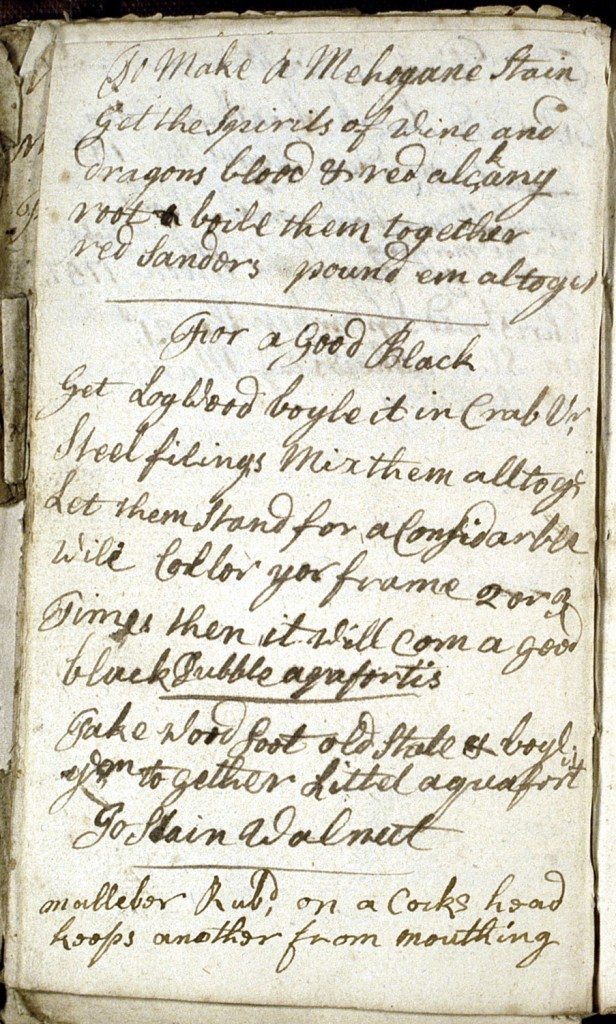 To Make A Mehogane Stain
Get the Spirits of wine and
dragons blood & red alckany
root & boile them together
red Sanders pound em altoger
For a Good Black
Get LogWood boyle it in Crab Vr
Steel filings Mix them alltogr
Let them stand for a Considarble
Collor yor frame 2 or 3
Times then it will com a good
black Dubble aqafortis
Take Wood Soot old Stale & boyl it
yem together Littel aquafort
To Stain Walnut
malleber Rubd, on a Cocks head
keeps another from mouthing